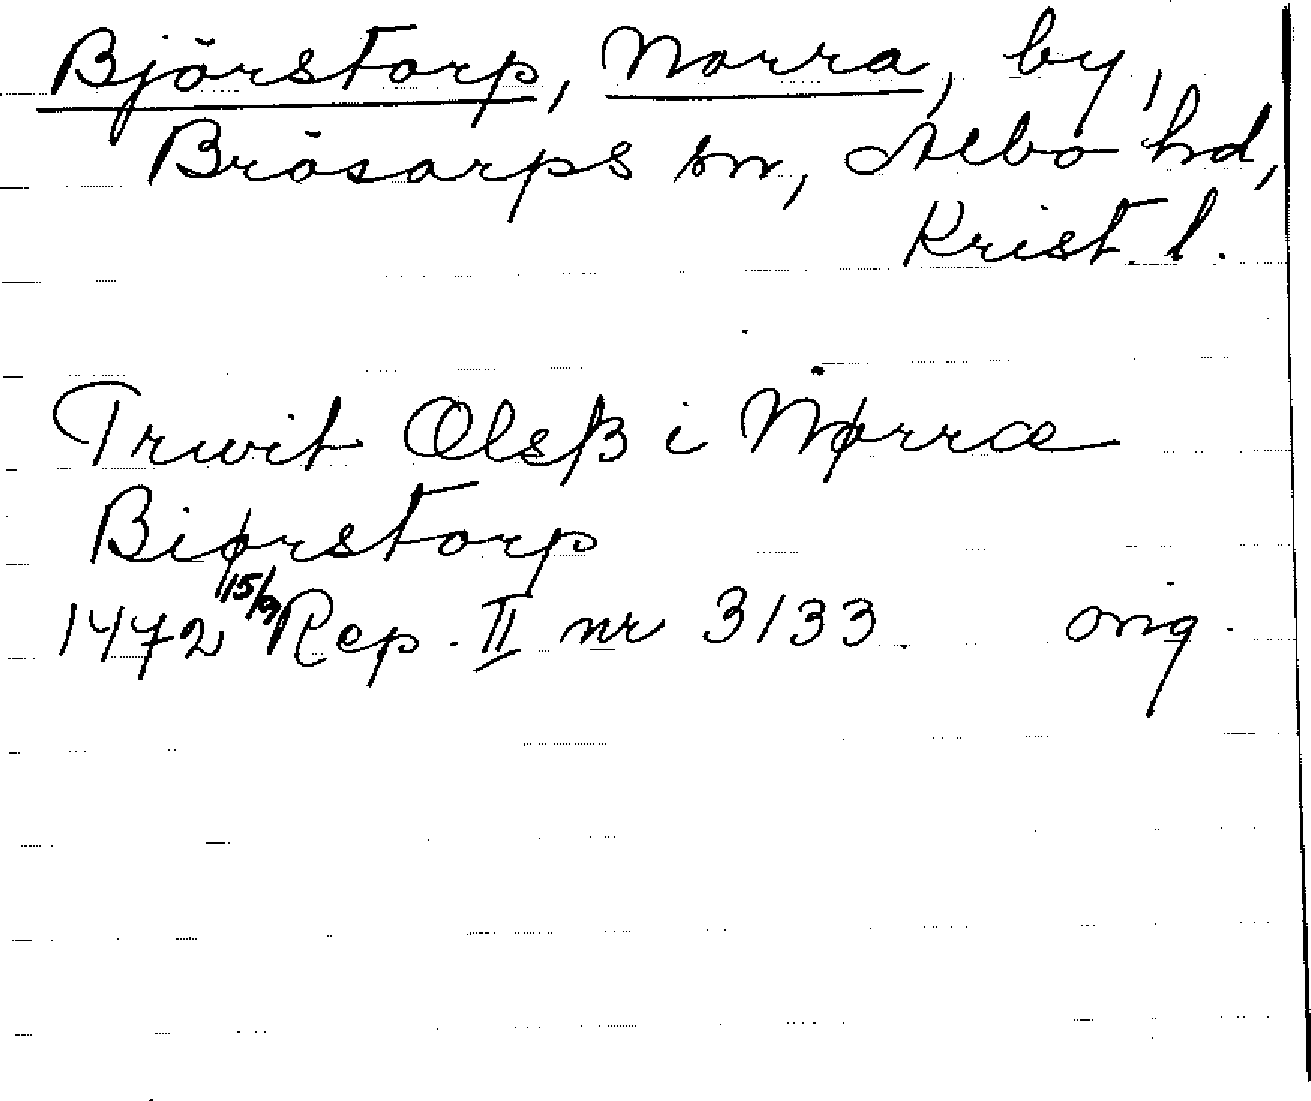 Björstorp, Norra, by,
Brösarps sn, Albo hd,
Krist. l.
Truvit Olsβ i Nørræ
Biørstorp
1472 15/9 Rep. II nr 3133 orig.